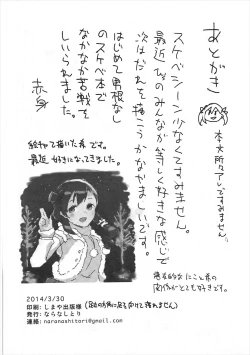 あとがき
本文所々アレですみません。
スケベシーン少なくてすみません。
最近μ'sのみんなが等しく好きな感じで
次はだれを描こうかなやましいです。
はじめて男根なし
のスケベ本で
なかなか苦戦を
しいられました。
赤身
絵チャで描いた希です。
最近好きになってきました。
男前な
にこと希の
関係がとても好きです。
2014/3/30
印刷:しまや出版様(足の方角に足を向けて寝れません)
発行:ならなしとり
連絡:naranashitori@gmail.com